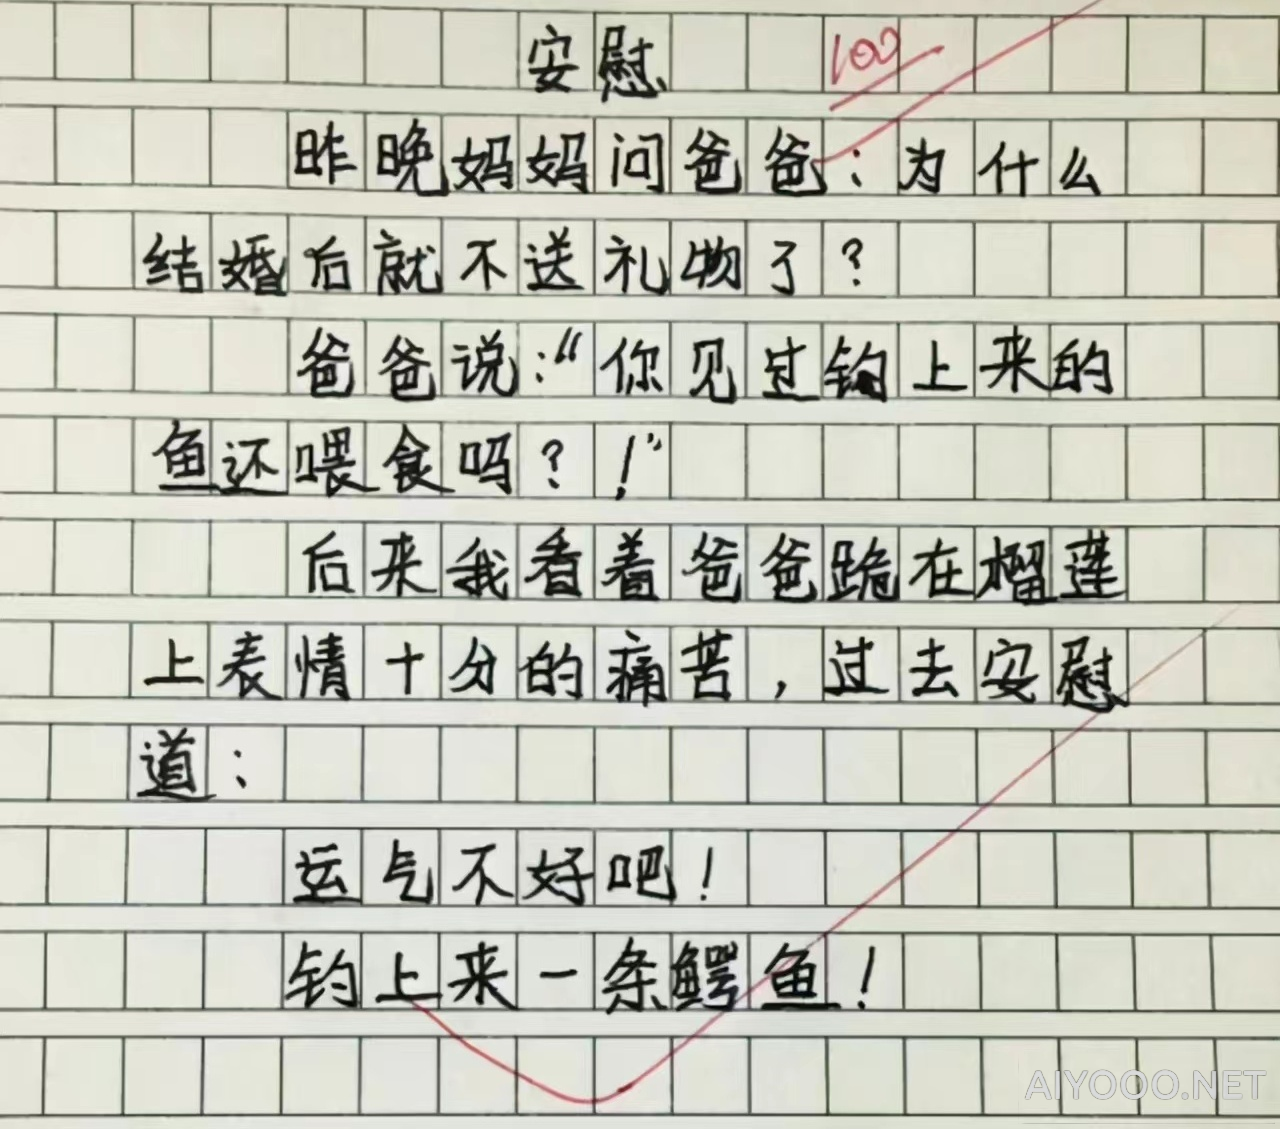 安慰 100
昨晚妈妈问爸爸：为什么
结婚后就不送礼物了？
爸爸说：“你见过钓上来的
鱼还喂食吗？！”
后来我看着爸爸跪在榴莲
上表情十分的痛苦，过去安慰
道：
运气不好吧！
钓上来一条鳄鱼！
AIYOOO.NET